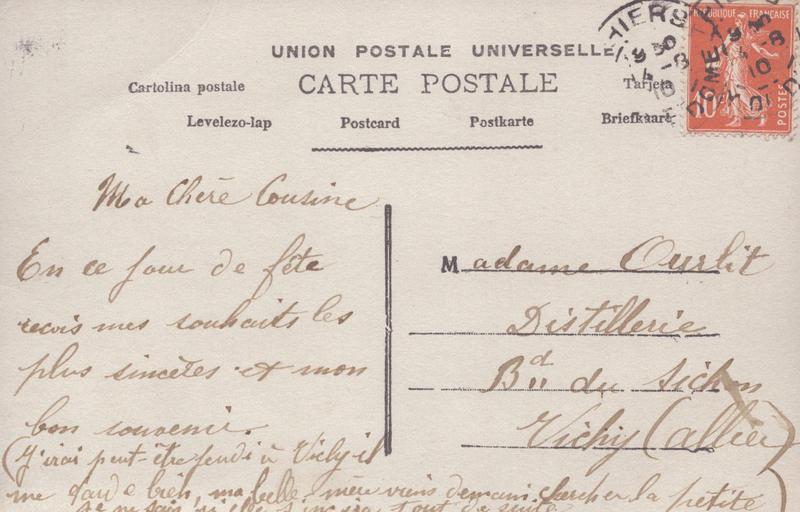 UNION POSTALE UNIVERSELLE
CARTE POSTALE
Cartolina postale
Tarjeta
Levelezo-lap Postcard Postkarte Briefkaart
THIERS
DOME
REPUBLIQUE FRANÇAISE
10
POSTES
Ma Chère Cousine
En ce jour de fête
reçois mes souhaits les
plus sincères et mon
bon souvenir.
(J'irai peut-être jeudi à Vichy il
me tarde bien, ma belle-mère viens demain chercher la petite
je ne sais si elle s' tout de suite)
Madame Ourlit
Distillerie
Bd du Sichon
Vichy (Allier)